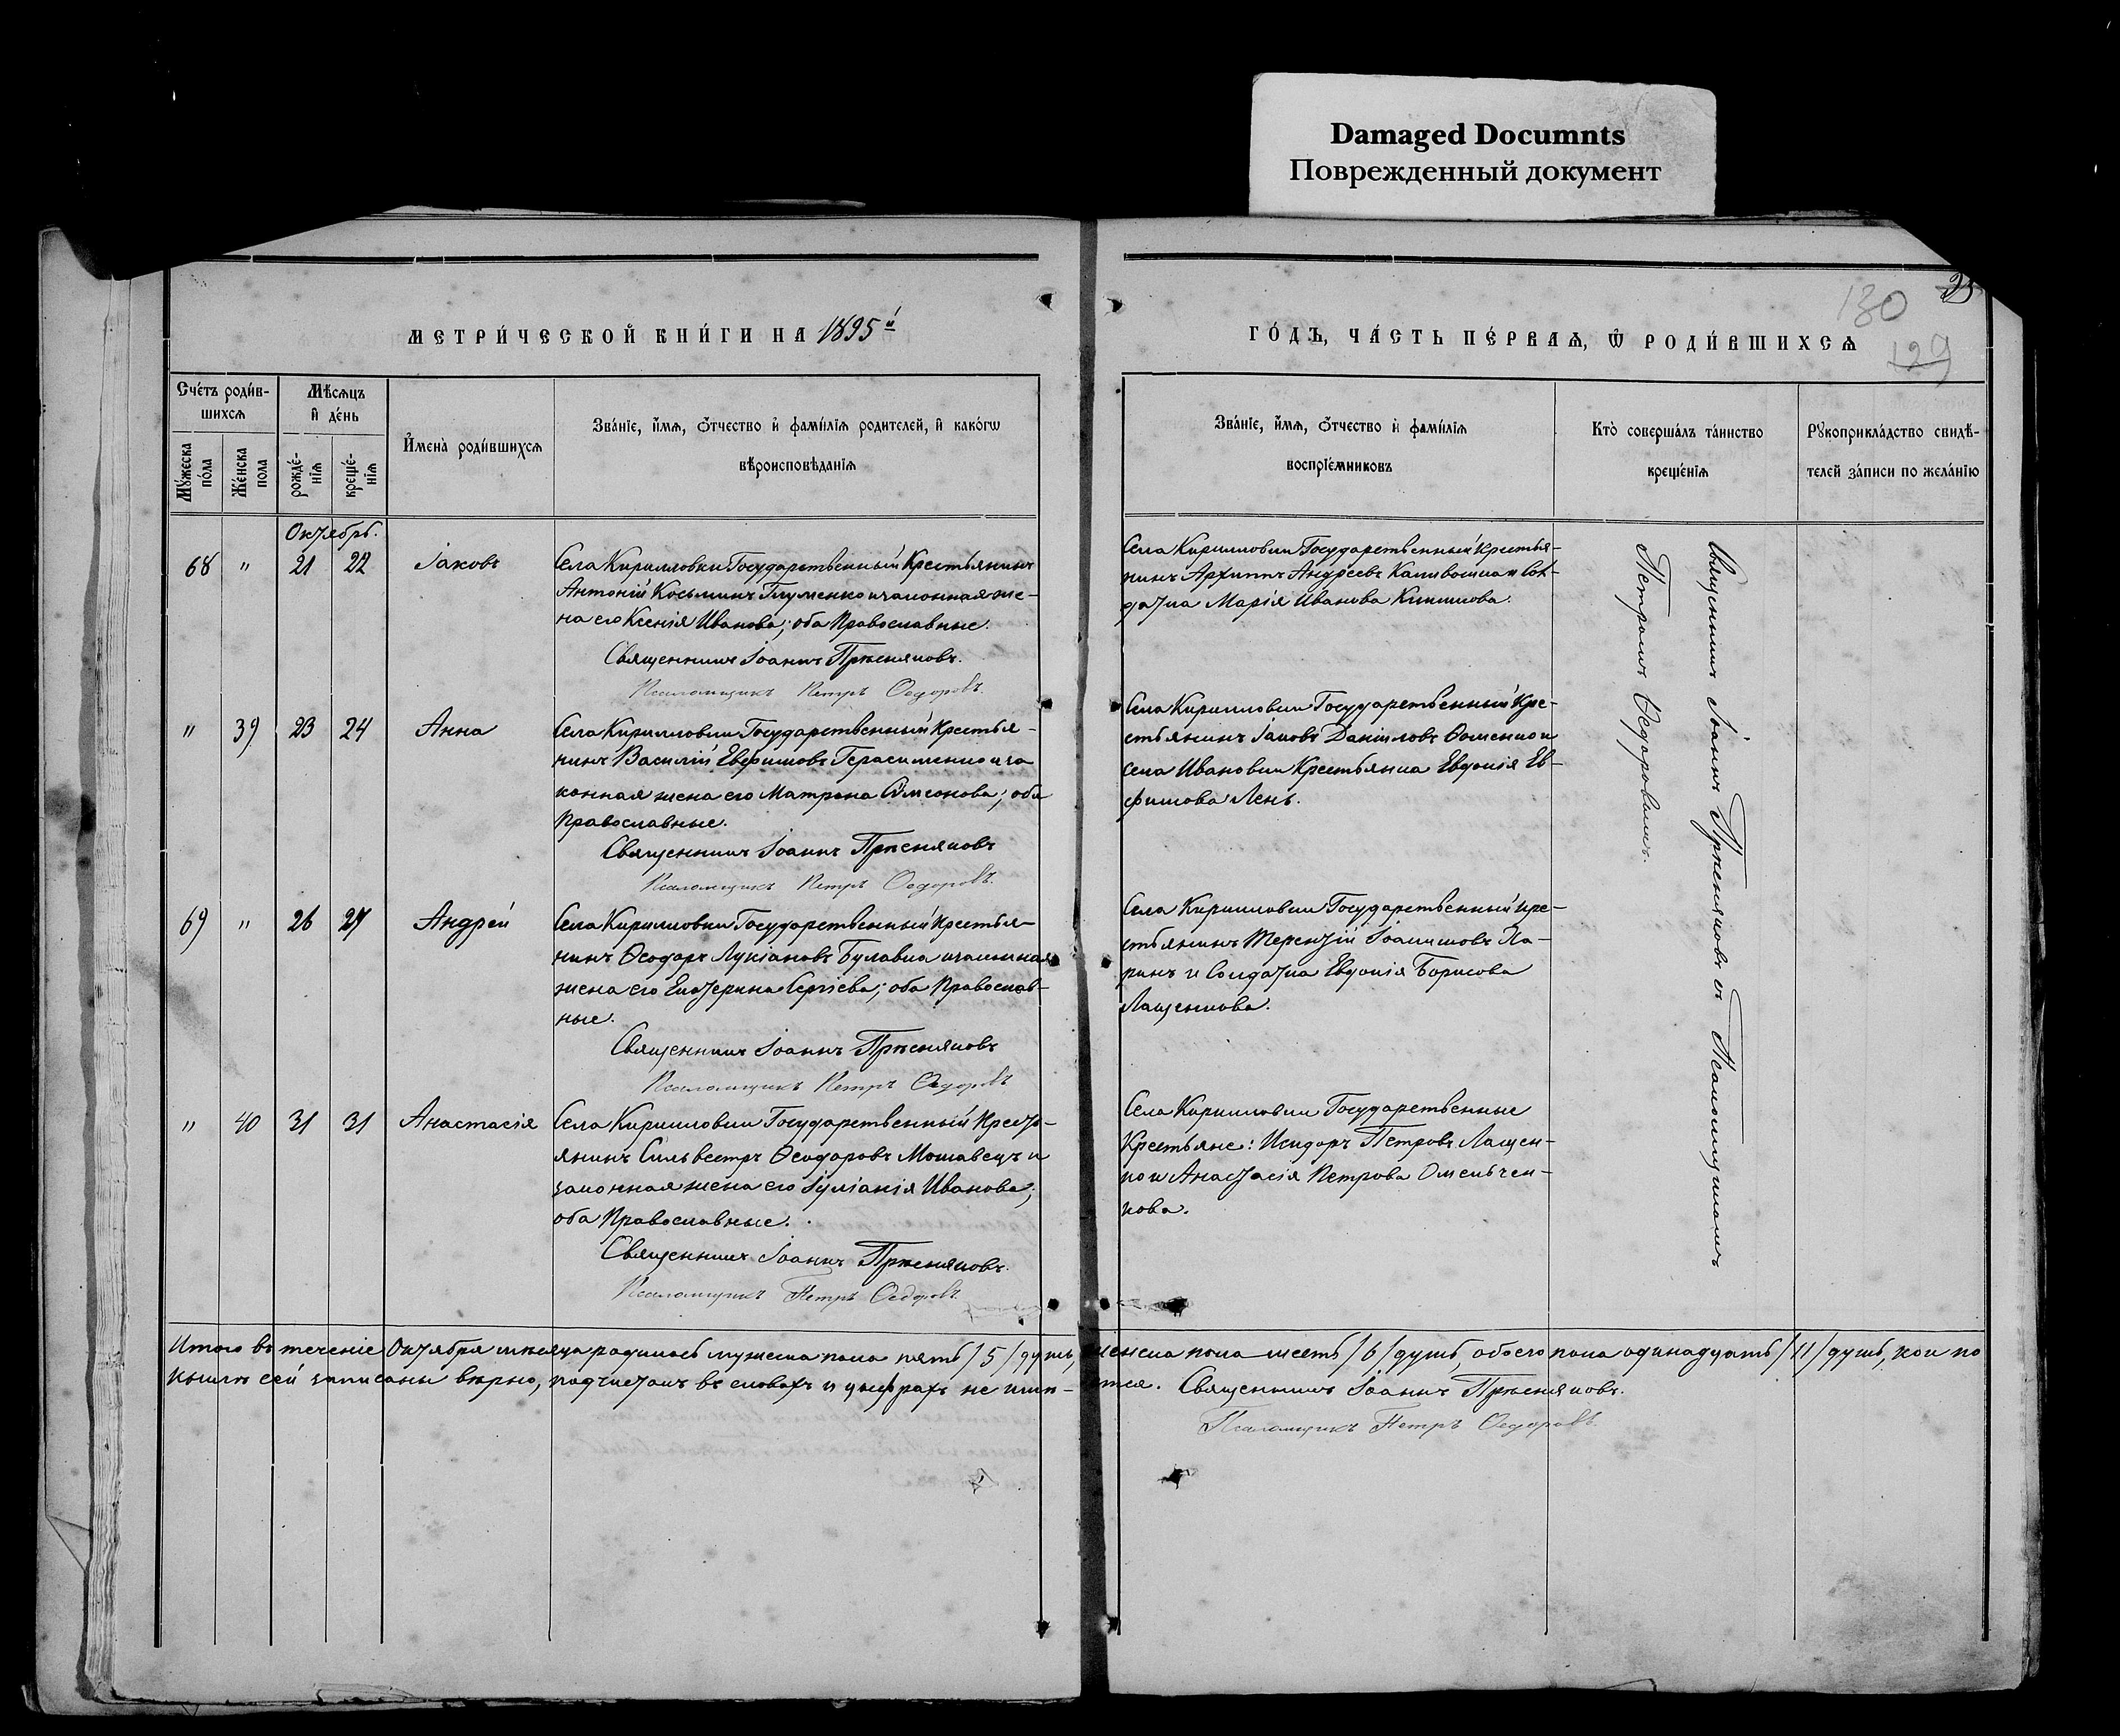 Damaged Documnts
Поврежденный документ
25
130
129
МЕТРИ́ЧЕСКОЙ КНИ́ГИ НА 1895й
ГО́ДЪ, ЧА́СТЬ ПЕ́РВАѦ, Ѡ҆ РОДИ́ВШИХСѦ
Сче́тъ роди́в-
шихсѧ
Мꙋ́жеска по́ла
Же́нска пола
Мѣ́сѧцъ
и҆ де́нь
рожде́-нїѧ
креще́-нїѧ
И҆мена̀ роди́вшихсѧ
Зва́нїе, и҆́мѧ, ѻ҆́тчество и҆ фами́лїѧ родителей, и҆ како́гѡ
вѣроисповѣданїѧ
Зва́нїе, и҆́мѧ, ѻ҆́тчество и҆ фами́лїѧ
воспрїе́мниковъ
Кто̀ соверша́лъ та́инство
креще́нїѧ
Рꙋкоприкла́дство свидѣ́-
телей за́писи по жела́нїю
Октябрь.
68 " 21 22 Іаковъ
Села Кирилловки Государственный Крестьянинъ
Антоній Косьминъ Глуменко и законная же-
на его Ксенія Иванова; оба Православные.
Священникъ Іоаннъ Прѣсняковъ.
Псаломщикъ Петръ Ѳедоровъ.
Села Кирилловки Государственный Крестья-
нинъ Архиппъ Андреевъ и Сол-
датка Марія Иванова
" 39 23 24 Анна
Села Кирилловки Государственный Крестья-
нинъ Василій Евфимовъ Герасименко и за
конная жена его Матрона Симеонова; оба
Православные.
Священникъ Іоаннъ Прѣсняковъ
Псаломщикъ Петръ Ѳедоровъ.
Села Кирилловки Государственный Кре-
стьянинъ Іаковъ Даніиловъ Ѳоменко и
села Ивановки Крестьянка Евдокія Ев-
фимова Лень.
69 " 26 27 Андрей
Села Кирилловки Государственный Крестья-
нинъ Ѳеодоръ Лукіановъ Булавка и законная
жена его Екатерина Сергіева; оба Православ-
ные.
Священникъ Іоаннъ Прѣсняковъ
Псаломщикъ Петръ Ѳедоровъ
Села Кирилловки Государственный Кре-
стьянинъ Терентій Іоакимовъ Ца-
ринъ и Солдатка Евдокія Борисова
Лащенкова.
" 40 31 31 Анастасія
Села Кирилловки Государственный Кресть-
янинъ Сильвестръ Ѳеодоровъ Мошавецъ и
законная жена его Іуліанія Иванова;
оба Православные.
Священникъ Іоаннъ Прѣсняковъ.
Псаломщикъ Петръ Ѳедоровъ.
Села Кирилловки Государственные
Крестьяне: Исидоръ Петровъ Лащен-
ко и Анастасія Петрова Омельчен-
кова.
Священникъ Іоаннъ Прѣсняковъ съ Псаломщикомъ
Петромъ Ѳедоровымъ.
Итого въ теченіе Октября мѣсяца родилось мужеска пола пять /5/ душъ, женска пола шесть /6/ душъ, обоего пола одинадцать /11/ душъ, кои по
книгѣ сей записаны вѣрно, подчистокъ въ словахъ и цыфрахъ не имѣ-ется. Священникъ Іоаннъ Прѣсняковъ.
Псаломщикъ Петръ Ѳедоровъ.